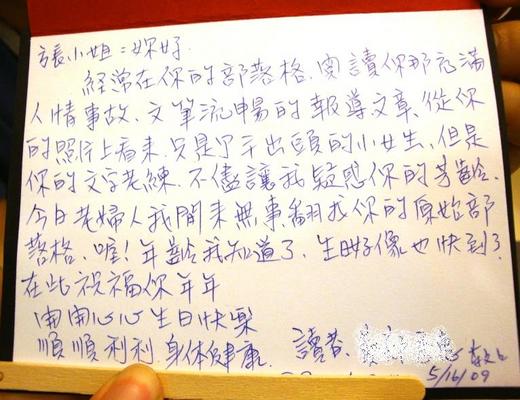 張小姐：妳好
經常在你的部落格，閱讀你那充滿
人情事故、文筆流暢的報導文章、從你
的照片上看來，只是個年出頭的小女生，但是
你的文字老練，不儘讓我疑惑你的芳齡。
今日老婦人我閒來無事翻找你的原始部
落格，喔！年齡我知道了，生日好像也快到了
在此祝福你年年
開開心心生日快樂
順順利利，身体健康
讀者、
5/16/09